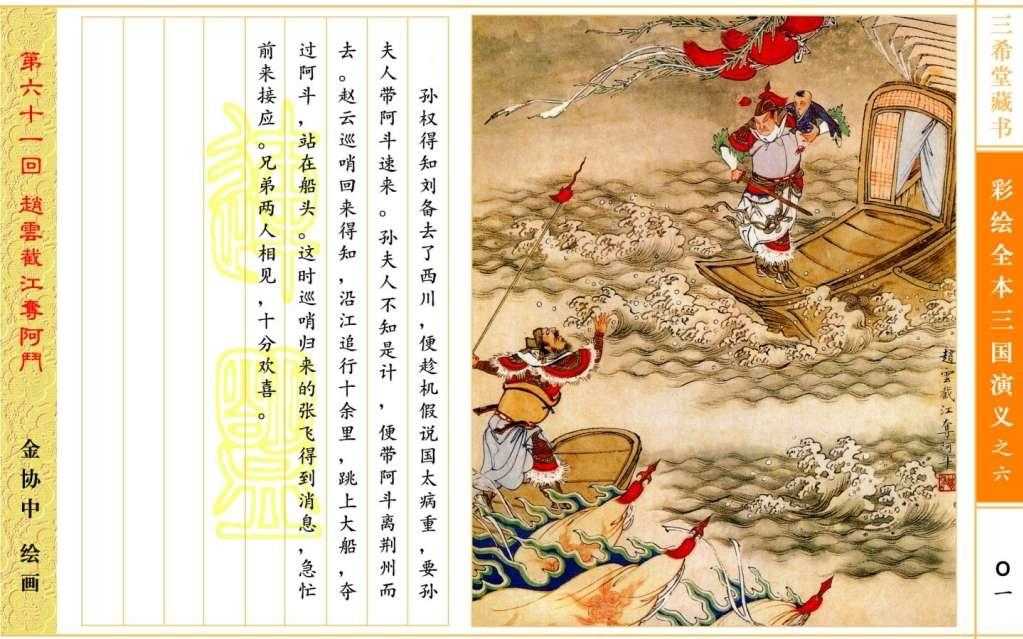 三希堂藏书
彩绘全本三国演义之六
〇一
趙雲截江奪阿斗
孙权得知刘备去了西川，便趁机假说国太病重，要孙
夫人带阿斗速来。孙夫人不知是计，便带阿斗离荆州而
去。赵云巡哨回来得知，沿江追行十余里，跳上大船，夺
过阿斗，站在船头。这时巡哨归来的张飞得到消息，急忙
前来接应。兄弟两人相见，十分欢喜。
第六十一回 趙雲截江奪阿鬥
金协中 绘画